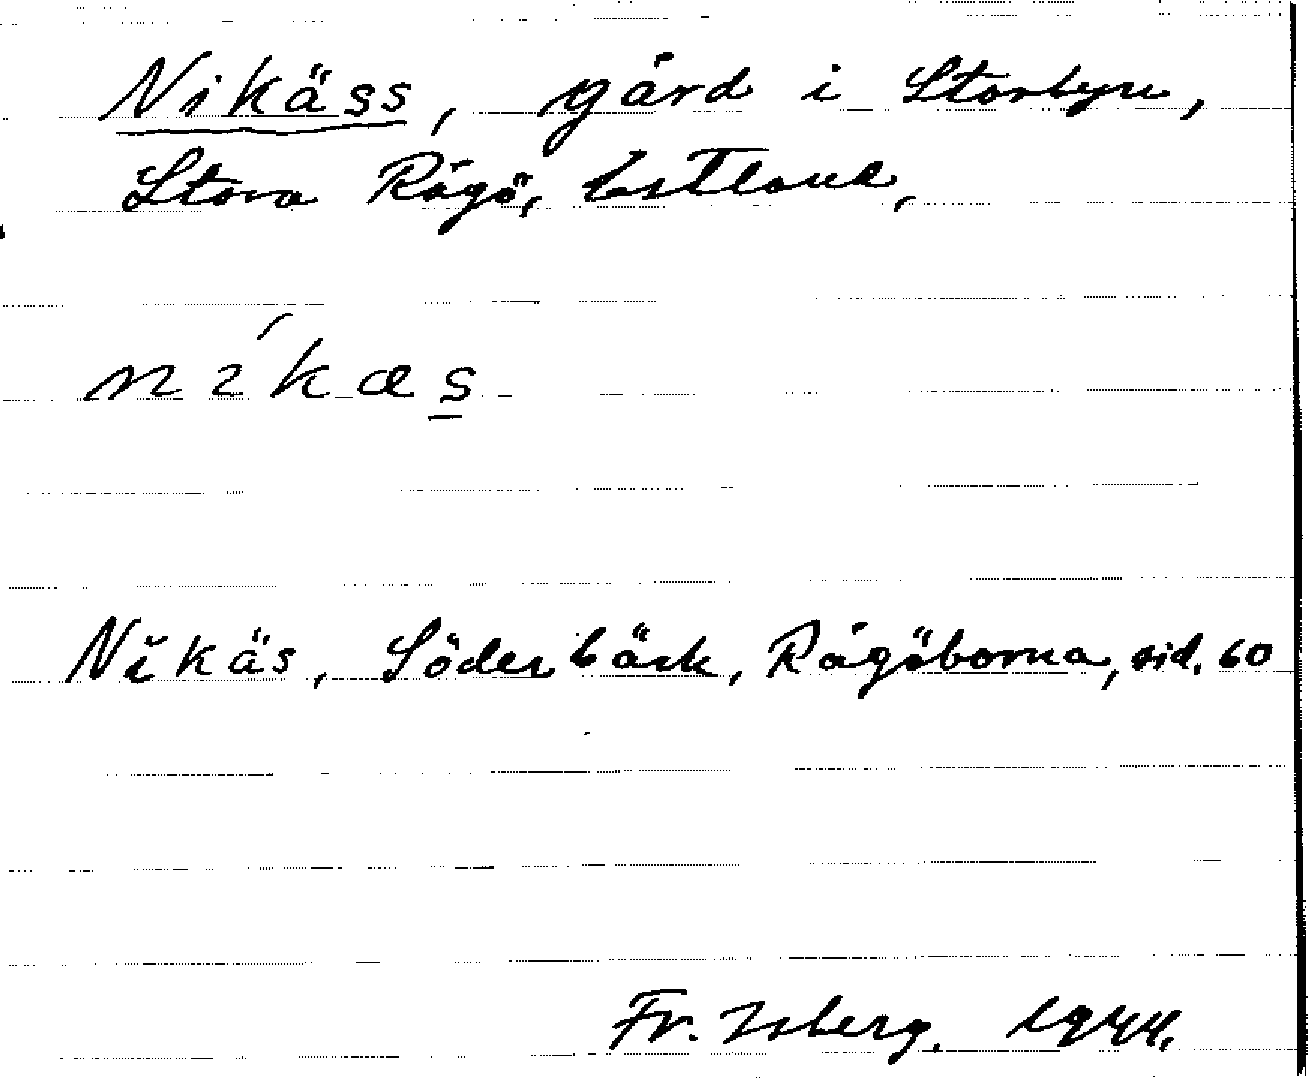 Nikäss, gård i Storbyn,
Stora Rågö, Estland,
níkæs̲
Nikäs, Söderbäck, Rågöborna, sid. 60
Fr. Isberg. 1944.